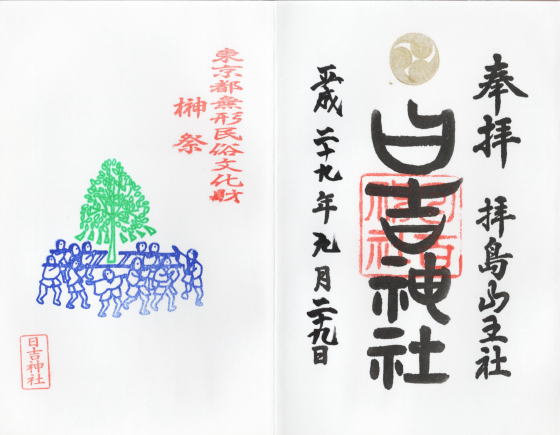 奉拝 拝島山王社
日吉神社
平成二十九年九月二十九日
東京都無形民俗文化財
榊祭
日吉神社